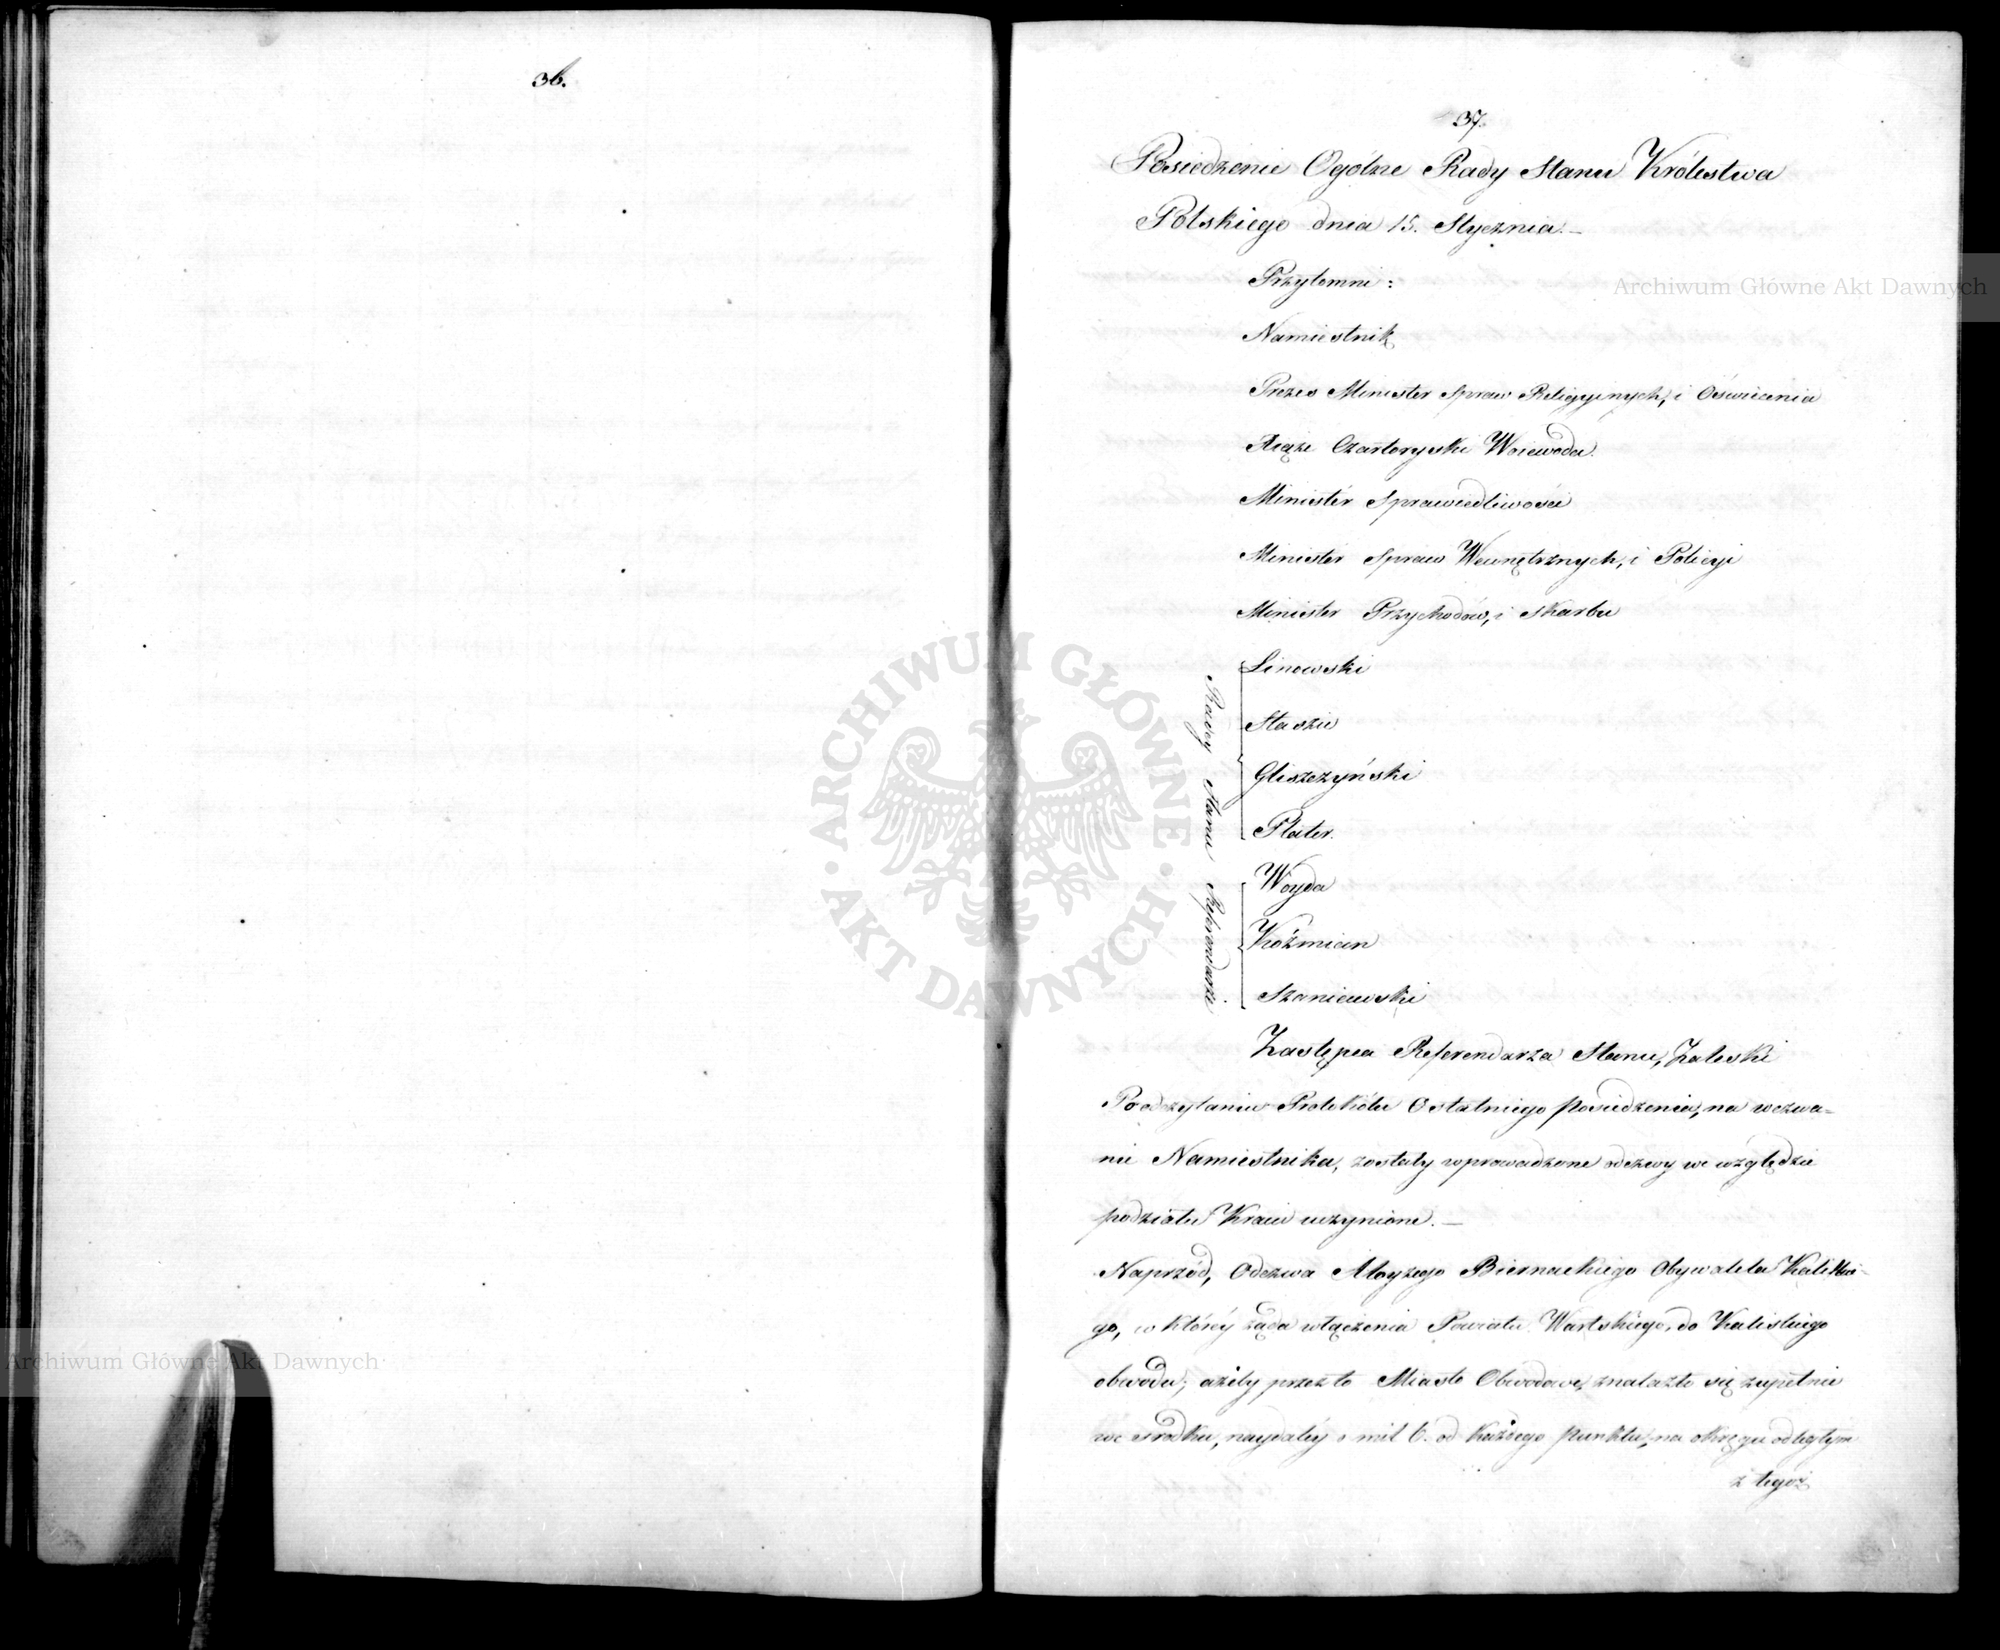 36.
37.
Posiedzenie Ogólne Rady Stanu Królestwa
Polskiego dnia 15. Stycznia.—
Przytomni:
Namiestnik
Prezes Minister Spraw Religyinych, i Oświecenia
Xiąże Czartoryski Woiewoda.
Minister Sprawiedliwości
Minister Spraw Wewnętrznych, i Policyi
Minister Przychodów, i Skarbu
Radcy Stanu
Linowski
Staszic
Gliszczyński
Plater.
Referendarze
Woyda
Koźmian
Szaniewski
Zastępca Referendarza Stanu, Zaleski
Po odczytaniu Protokółu Ostatniego posiedzenia, na wezwa=
nie Namiestnika, zostały wprowadzone odezwy we względzie
podziału Kraiu uczynione.—
Naprzód, Odezwa Aloyzego Biernackiego Obywatela Kaliskie-
go, w któréy żąda włączenia Powiatu Wartskiego, do Kaliskiego
obwodu; ażeby przez to Miasto Obwodowe, znalazło się zupełnie
we środku, naydaléy o mil 6. od każdego punktu, na okręgu odległym
z tegoż
Archiwum Główne Akt Dawnych
Archiwum Główne Akt Dawnych
ARCHIWUM GŁÓWNE · AKT DAWNYCH ·